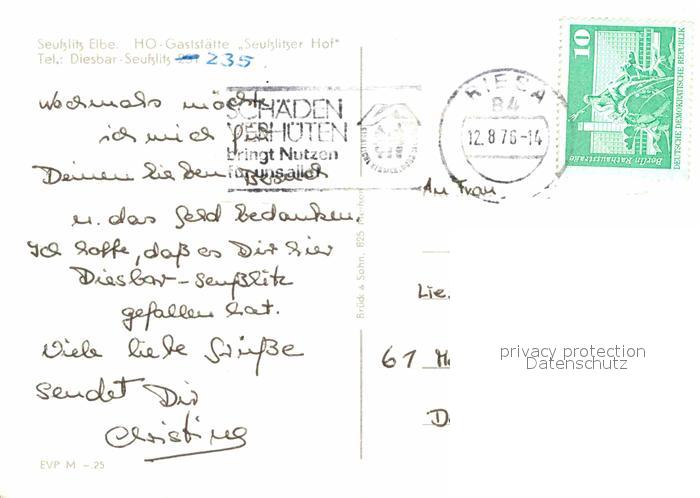 Seußlitz Elbe. HO-Gaststätte „Seußlitzer Hof"
Tel.: Diesbar-Seußlitz 235
nochmals möchte
ich mich für
Deinen lieben Besuch
u. das Geld bedanken.
Ich hoffe, daß es Dir hier
Diesbar-Seußlitz
gefallen hat.
Viele liebe Grüße
sendet Dir
Christine
EVP M -.25
Brück & Sohn, 825 Meißen
SCHÄDEN
VERHÜTEN
bringt Nutzen
für uns alle!
RIESA
84
12.8.76-14
10
Berlin Rathausstraße
DEUTSCHE DEMOKRATISCHE REPUBLIK
An Frau
Lie.
61
D
privacy protection
Datenschutz